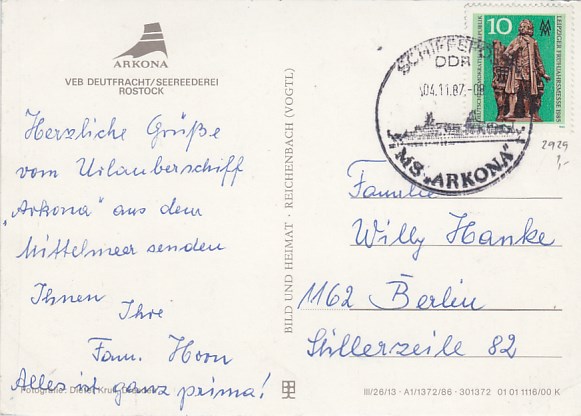 ARKONA
VEB DEUTFRACHT/SEEREEDEREI
ROSTOCK
Herzliche Grüße
vom Urlauberschiff
„Arkona" aus dem
Mittelmeer senden
Ihnen Ihre
Fam. Horn
Alles ist ganz prima!
Fotografie: Dieter
BILD UND HEIMAT · REICHENBACH (VOGTL)
SCHIFFSPOST
DDR
04.11.87.-08
MS „ARKONA"
10
DEUTSCHE DEMOKRATISCHE REPUBLIK
LEIPZIGER FRÜHJAHRSMESSE 1985
MM
2929
1,-
Familie
Willy Hanke
1162 Berlin
Stillerzeile 82
III/26/13 · A1/1372/86 · 301372 01 01 1116/00 K